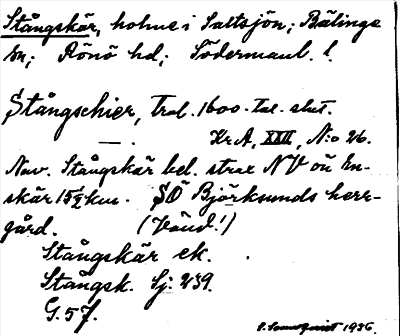 Stångskär, holme i Saltsjön; Bälinge
sn; Rönö hd; Södermanl. l.
Stångschier, trol. 1600-tal. slut.
— . Kr.A, XXII, N:o 26.
Nuv. Stångskär bel. strax NV om En-
skär 15½ km. SÖ Björksunds herr-
gård. (Vänd!)
Stångskär ek.
Stångsk. Sj. 239.
G. 57.
1936.